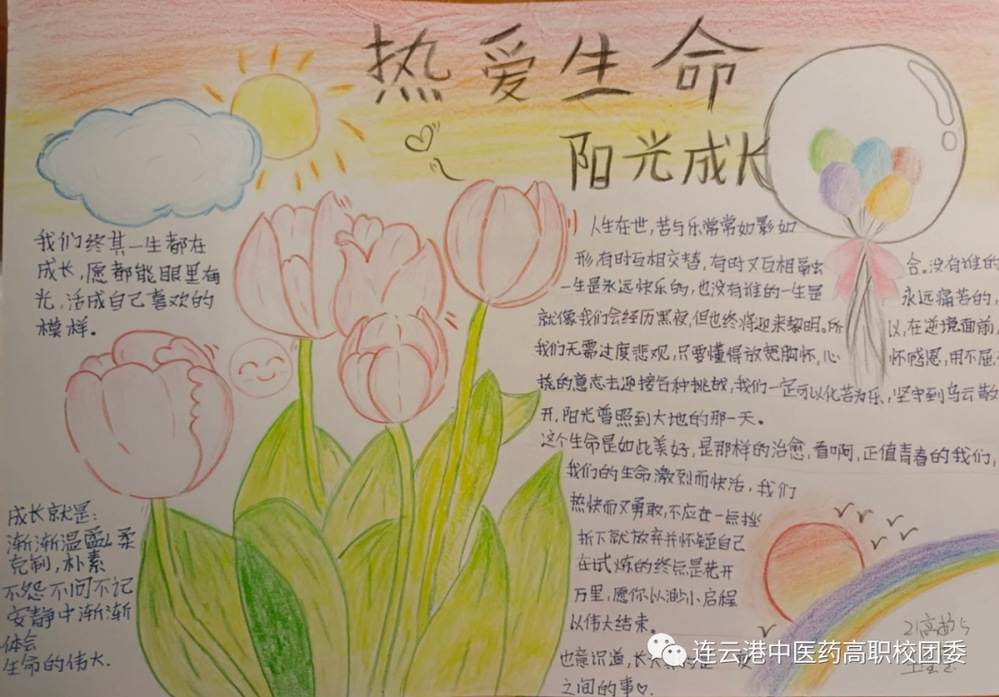 热爱生命
阳光成长
我们终其一生都在
成长，愿都能眼里有
光，活成自己喜欢的
模样。
人生在世，苦与乐常常如影如
形，有时互相交替，有时又互相融合。没有谁的
一生是永远快乐的，也没有谁的一生是永远痛苦的，
就像我们会经历黑夜，但也终将迎来黎明。所以，在逆境面前，
我们无需过度悲观，只要懂得放宽胸怀，心怀感恩，用不屈
挠的意志去迎接各种挑战，我们一定可以化苦为乐，坚守到乌云散
开，阳光普照到大地的那一天。
这个生命是如此美好，是那样的治愈，看啊，正值青春的我们，
我们的生命激烈而快活，我们
热快而又勇敢，不应在一点挫
折下就放弃并怀疑自己
在试炼的终点是花开
万里，愿你以渺小启程
以伟大结束。
也意识道，长大
之间的事
成长就是：
渐渐温柔
克制，朴素
不怨不问不记
安静中渐渐
体会
生命的伟大.
连云港中医药高职校团委